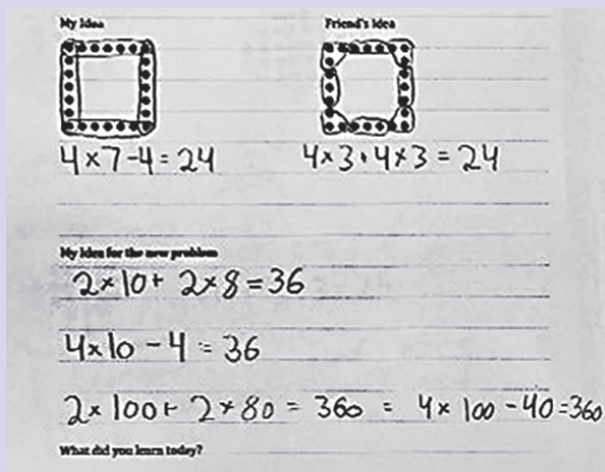 My Idea Friend's Idea
4×7-4=24 4×3+4×3=24
My Idea for the new problem
2×10+ 2×8=36
4×10-4=36
2×100+ 2×80 = 360 = 4×100-40=360
What did you learn today?